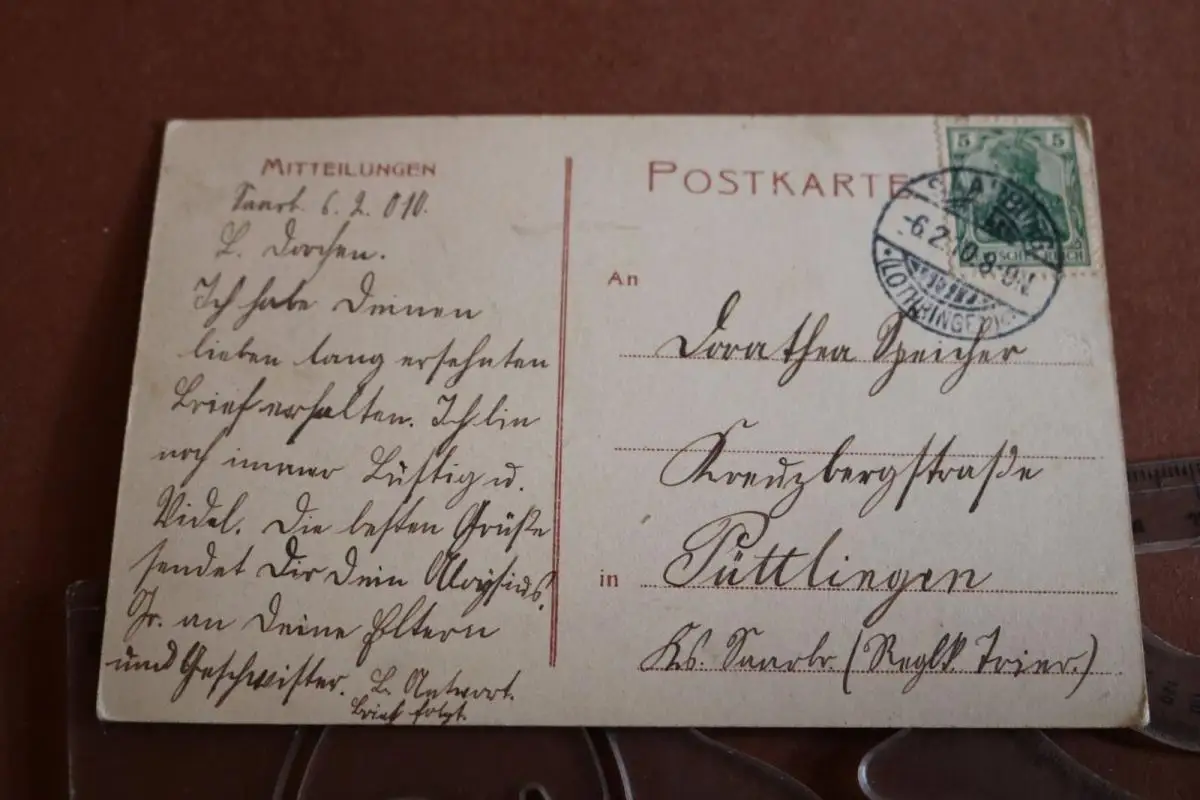 MITTEILUNGEN
Saarb. 6. 2. 010.
L. Dorchen.
Ich habe Deinen
lieben lang ersehnten
Brief erhalten. Ich bin
noch immer Lustig u.
Fidel. Die besten Grüße
sendet Dir Dein Aloysius.
Gr. an Deine Eltern
und Geschwister.
B. Antwort.
Brief folgt.
POSTKARTE
5 5
SAARBURG
-6.2.10.8-9N.
*(LOTHRINGEN)
An
Dorathea Speicher
Kreuzbergstraße
in Püttlingen
Ks. Saarbr. (Reglk Trier.)